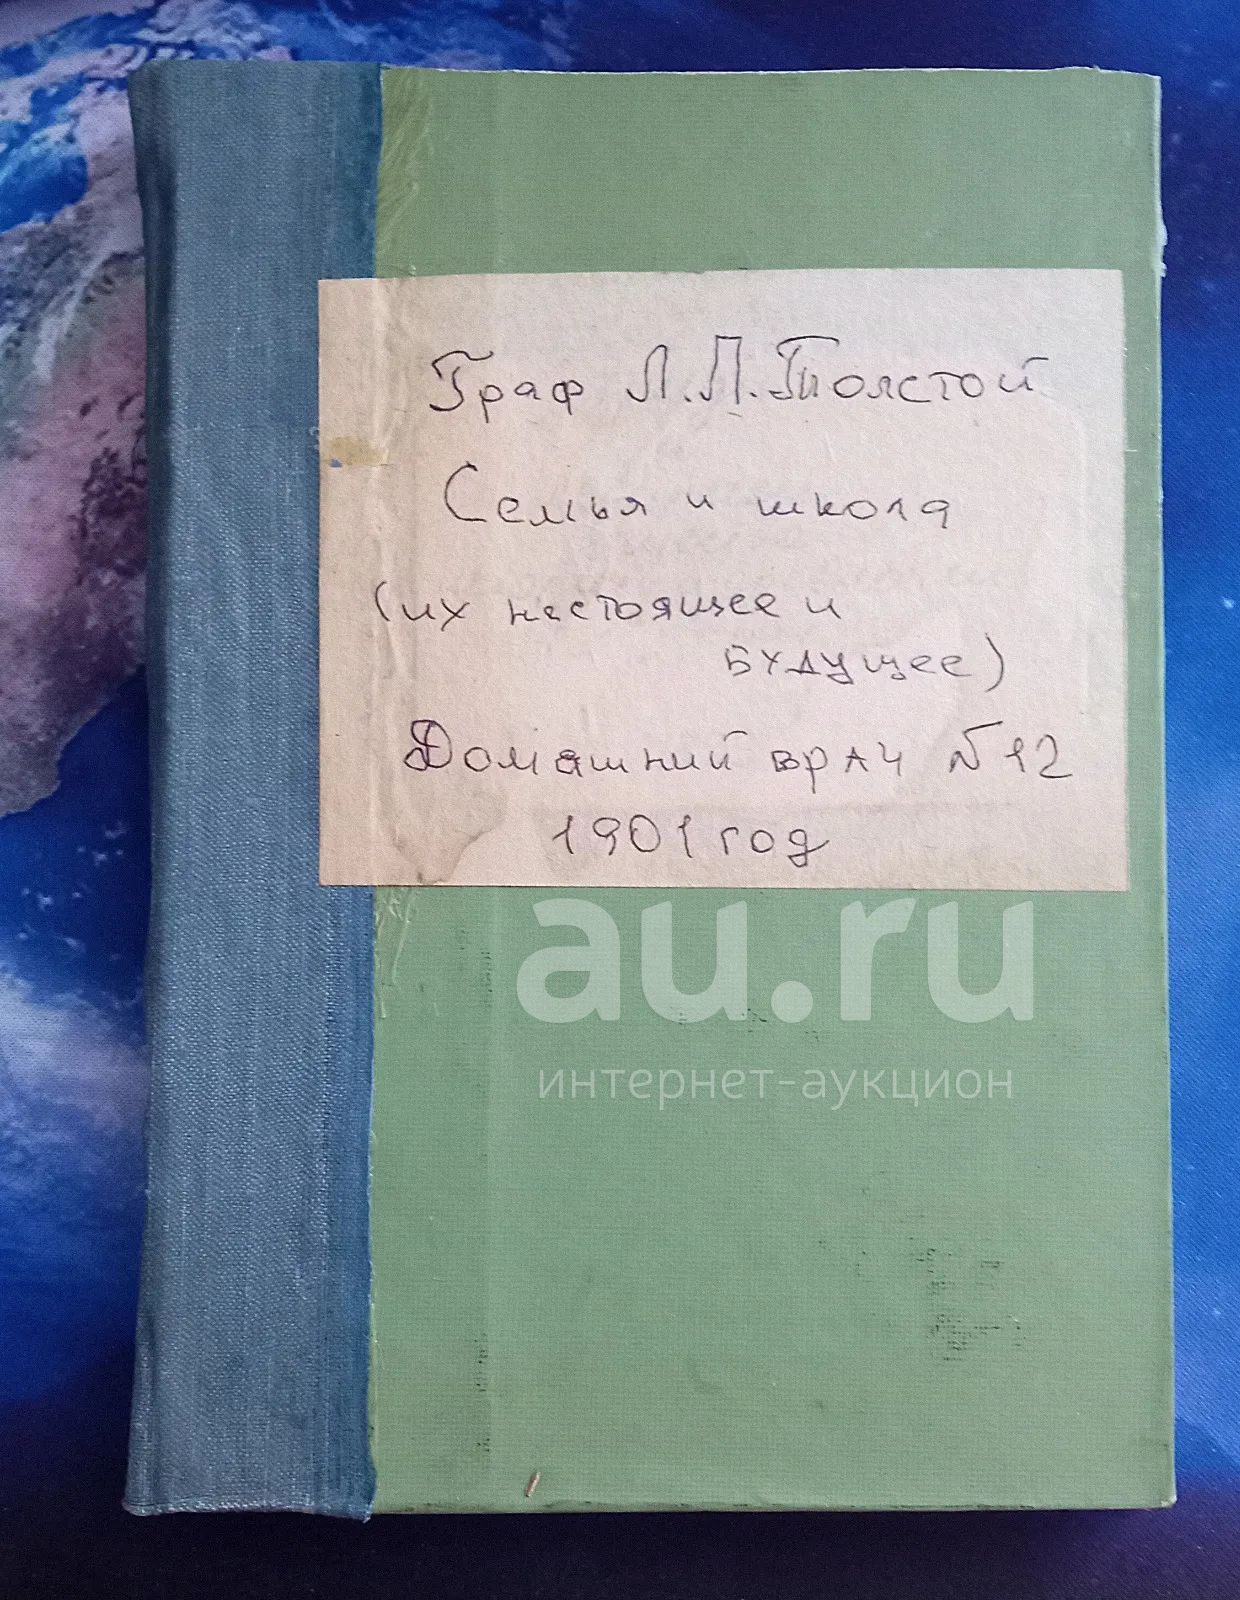 Граф Л.Л.Толстой
Семья и школа
(их настоящее и
будущее)
Домашний врач №12
1901 год
au.ru
интернет-аукцион